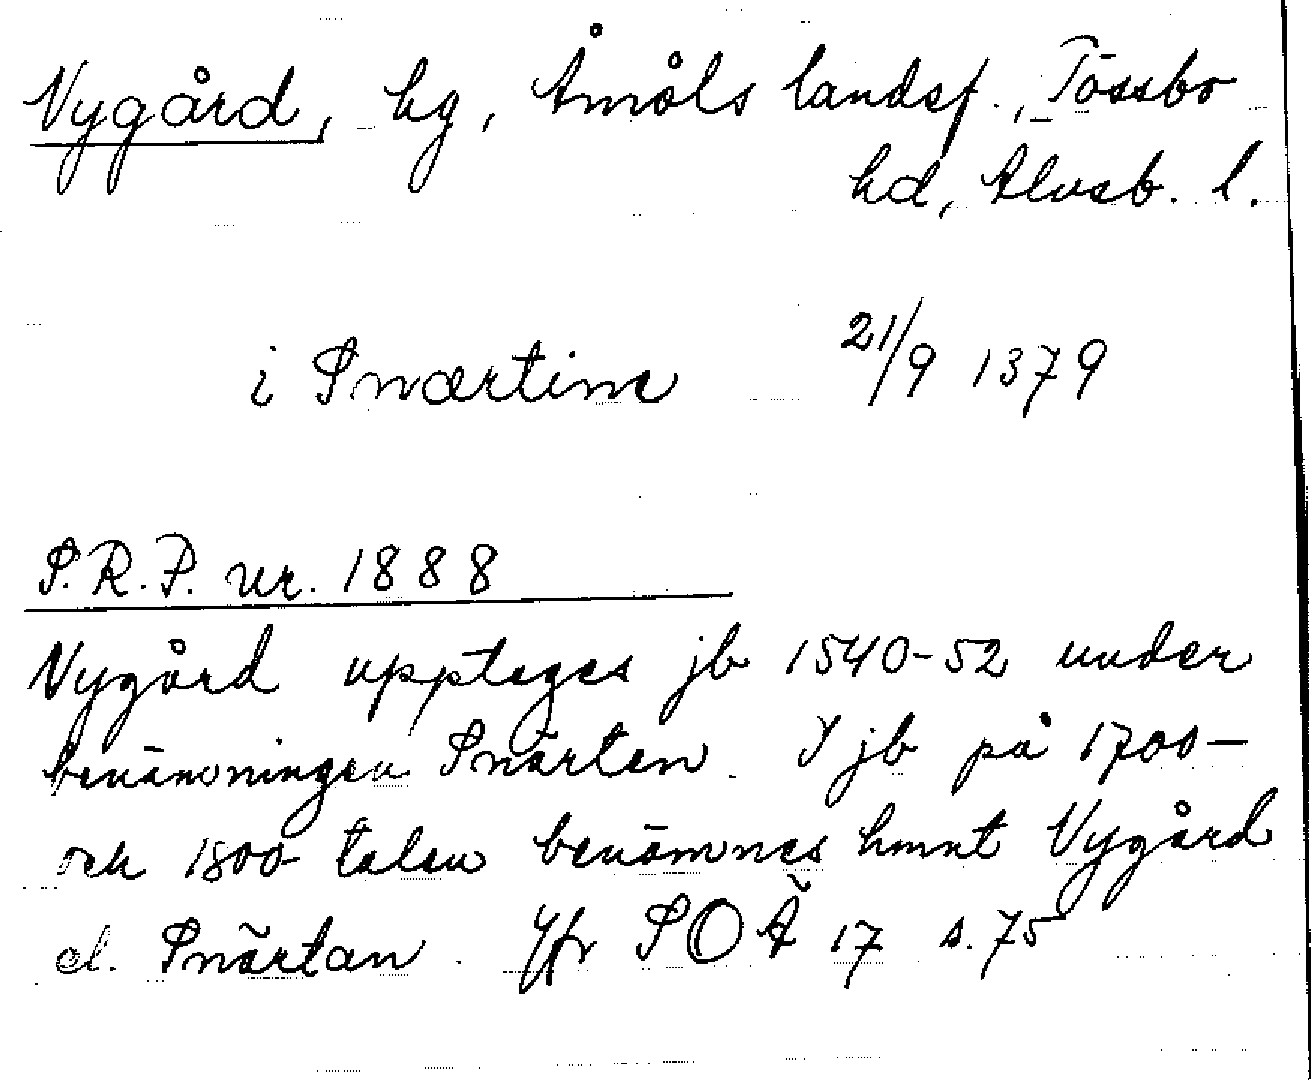 Nygård, hg, Åmåls landsf., Tössbo
hd, Älvsb. l.
i Snærtine 21/9 1379
S.R.P. nr. 1888
Nygård upptages jb 1540-52 under
benämningen Snärten. I jb på 1700-
och 1800-talen benämnes hmnt Nygård
el. Snärtan. Jfr SOÄ 17 s. 75